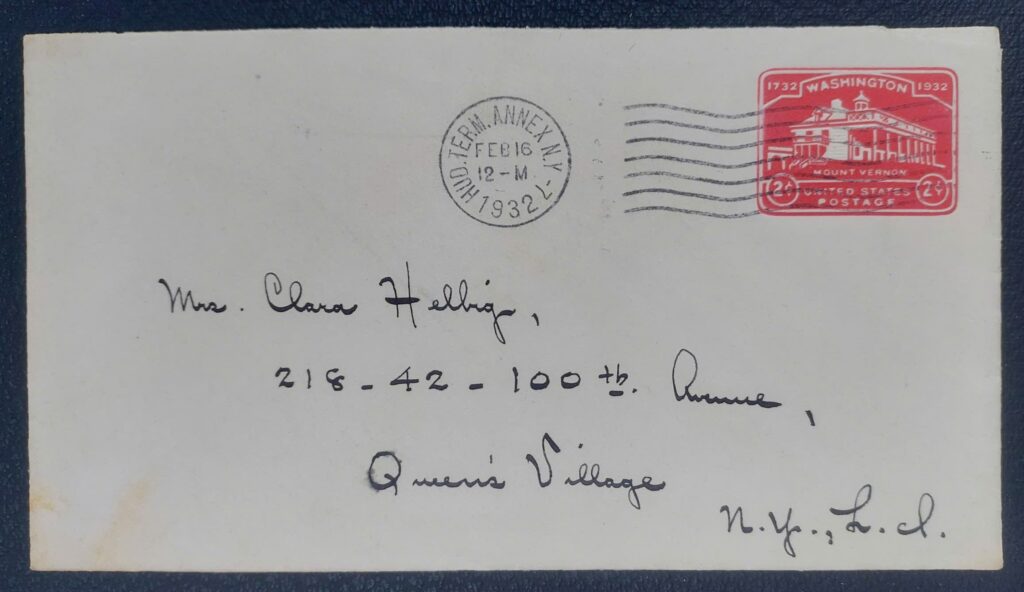 1732 WASHINGTON 1932
MOUNT VERNON
2¢ UNITED STATES 2¢
POSTAGE
HUD. TERM. ANNEX N.Y.
FEB 16
12-M
1932
Mrs. Clara Helbig,
218-42-100th. Avenue,
Queen's Village
N.Y., L.I.